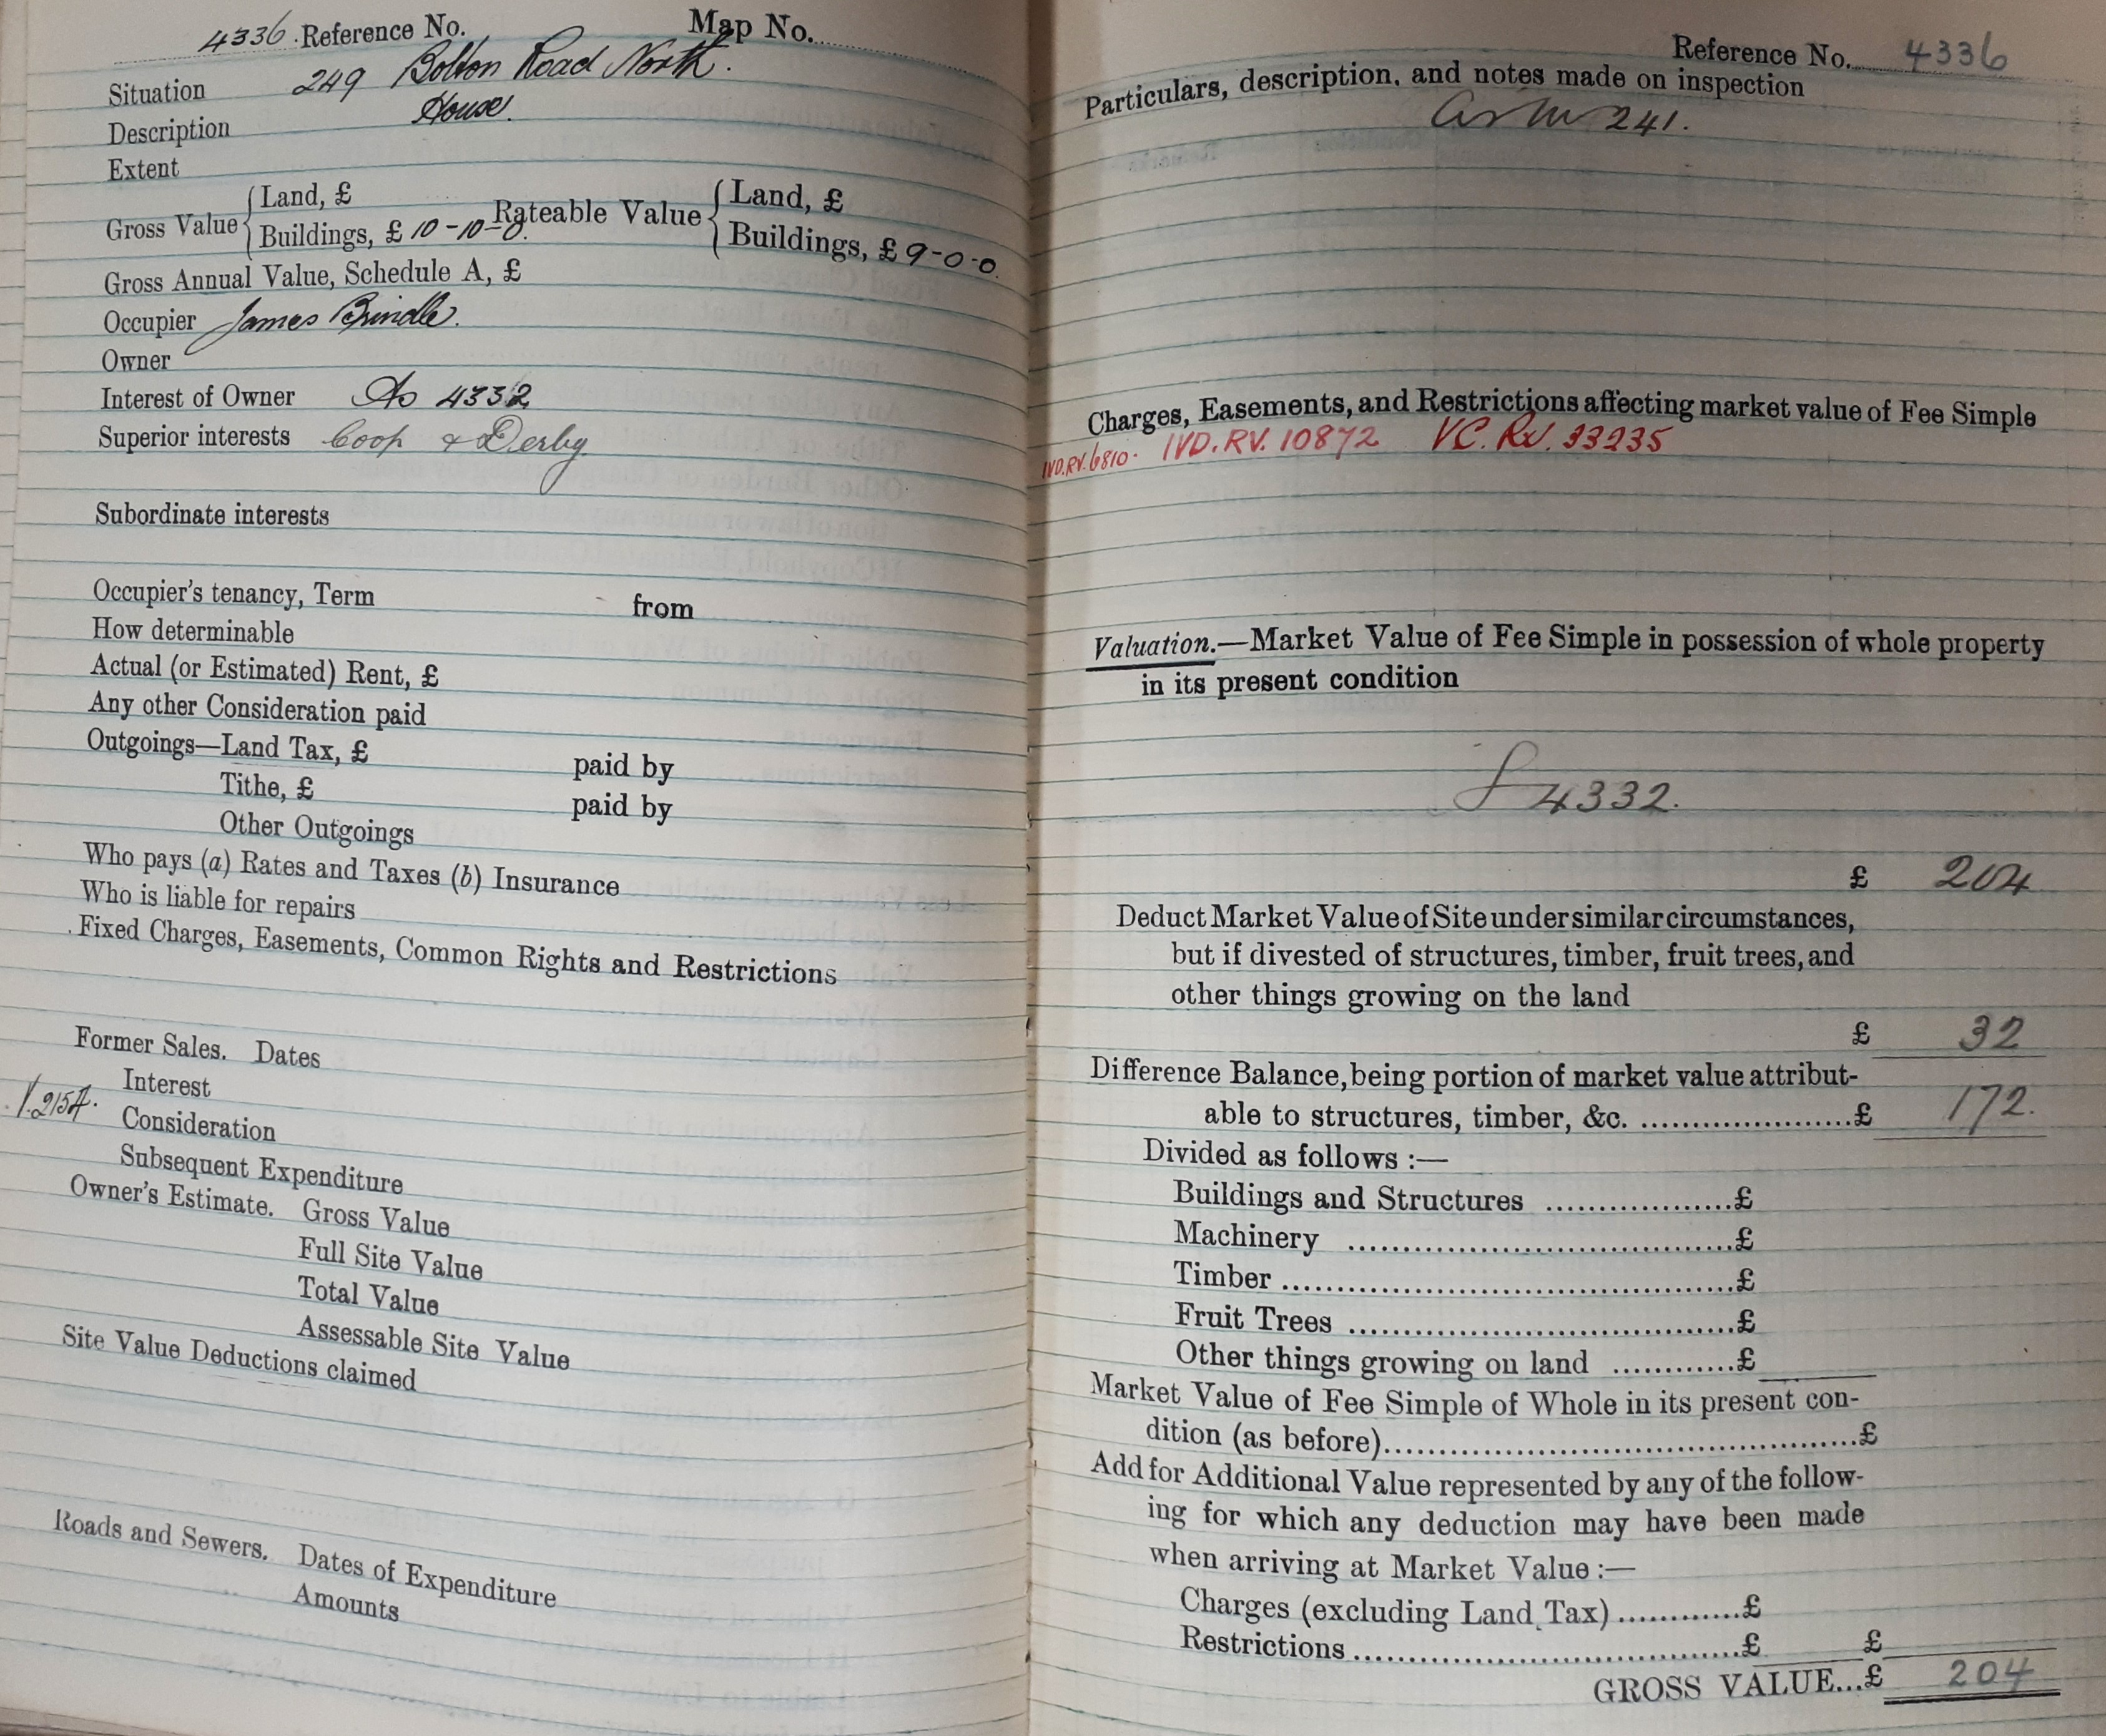 4336. Reference No. Map No.
Situation 249 Bolton Road North.
Description House.
Extent
Gross Value { Land, £
Buildings, £ 10-10-0. Rateable Value { Land, £
Buildings, £ 9-0-0.
Gross Annual Value, Schedule A, £
Occupier James Brindle.
Owner
Interest of Owner As 4332
Superior interests Coop & Derby
Subordinate interests
Occupier's tenancy, Term from
How determinable
Actual (or Estimated) Rent, £
Any other Consideration paid
Outgoings—Land Tax, £ paid by
Tithe, £ paid by
Other Outgoings
Who pays (a) Rates and Taxes (b) Insurance
Who is liable for repairs
Fixed Charges, Easements, Common Rights and Restrictions
Former Sales. Dates
Interest
Consideration
Subsequent Expenditure
Owner's Estimate. Gross Value
Full Site Value
Total Value
Assessable Site Value
Site Value Deductions claimed
Roads and Sewers. Dates of Expenditure
Amounts
Reference No. 4336
Particulars, description, and notes made on inspection
241.
Charges, Easements, and Restrictions affecting market value of Fee Simple
IVD.RV.6810. IVD.RV. 10872 VC. RV. 33235
Valuation.—Market Value of Fee Simple in possession of whole property
in its present condition
4332.
£ 204
Deduct Market Value of Site under similar circumstances,
but if divested of structures, timber, fruit trees, and
other things growing on the land
£ 32
Difference Balance, being portion of market value attribut-
able to structures, timber, &c. ....................£ 172.
Divided as follows :—
Buildings and Structures ..................£
Machinery ....................................£
Timber ..........................................£
Fruit Trees ....................................£
Other things growing on land ............£
Market Value of Fee Simple of Whole in its present con-
dition (as before)............................................£
Add for Additional Value represented by any of the follow-
ing for which any deduction may have been made
when arriving at Market Value :—
Charges (excluding Land Tax) ............£
Restrictions ....................................£ £
GROSS VALUE...£ 204